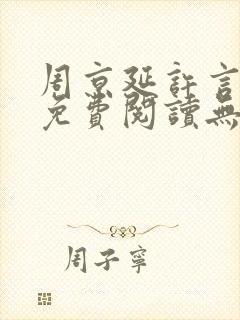 周京延許言
免費閱讀無
周子寧